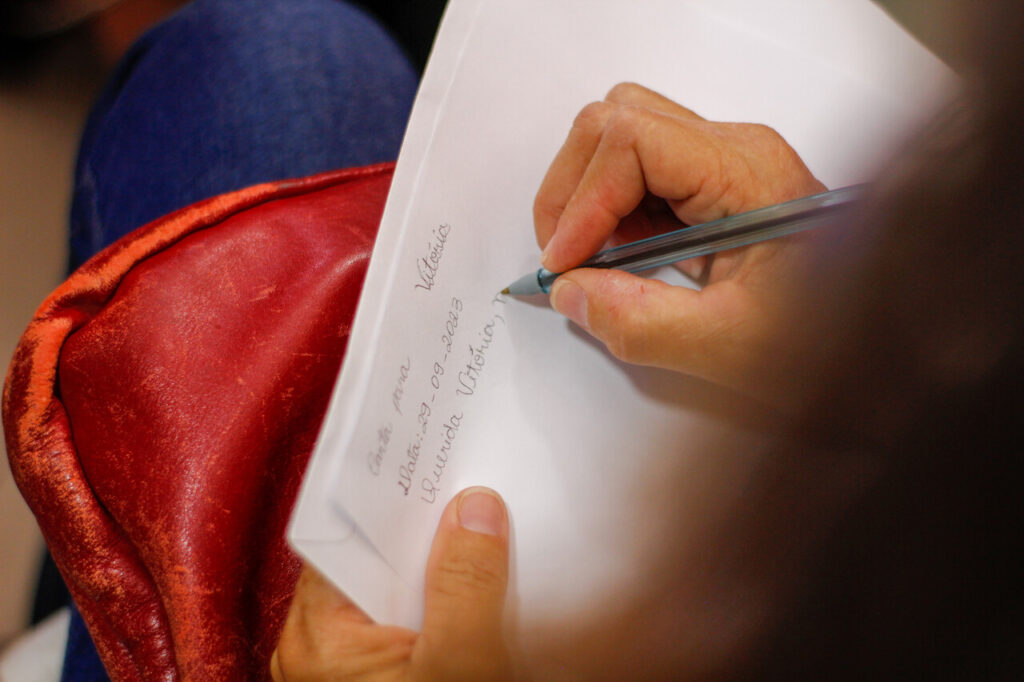 Carta para Vitória
Data: 29-09-2023
Querida Vitória,